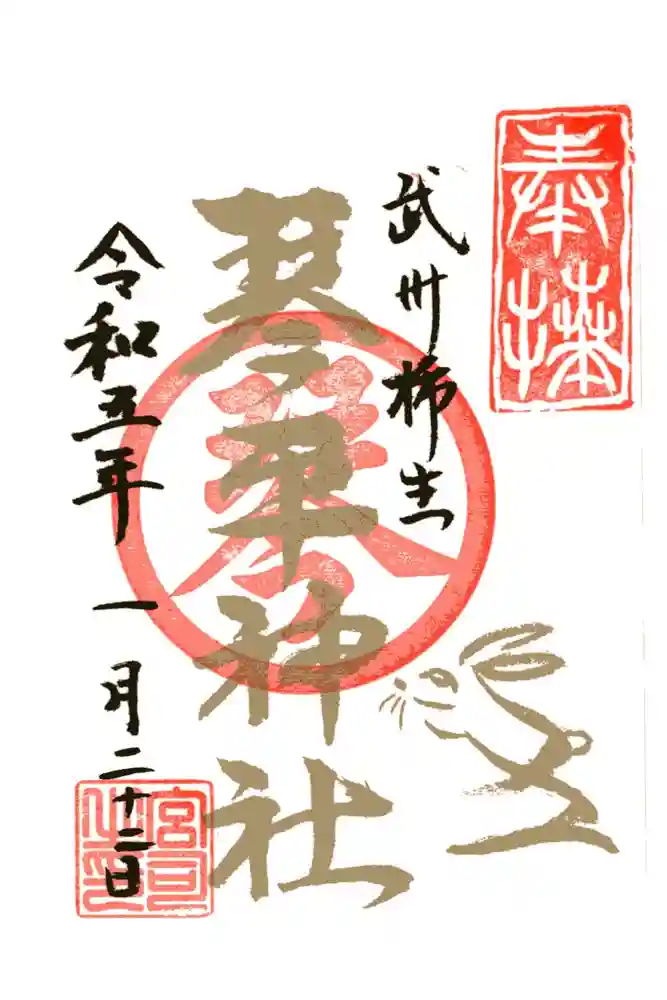 奉拝
武州柿生
琴平神社
令和五年一月二十二日
宮司之印